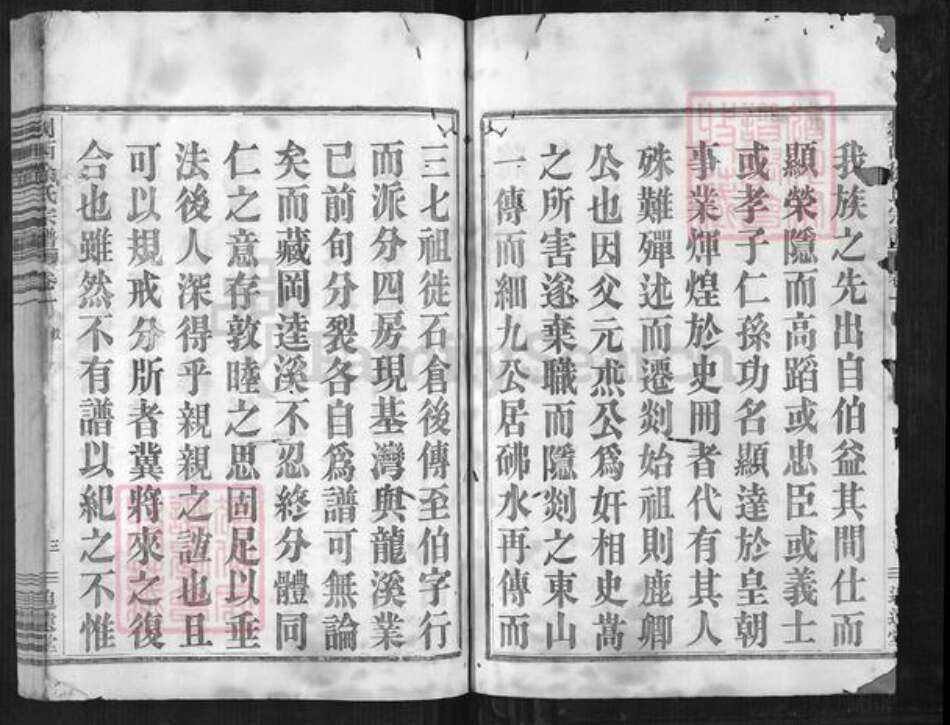 我族之先出自伯益其間仕而
顯榮隱而高蹈或忠臣或義士
或孝子仁孫功名顯達於皇朝
事業煇煌於史冊者代有其人
殊難殫述而遷剡始祖則鹿卿
公也因父元焘公爲奸相史嵩
之所害遂棄職而隱剡之東山
一傳而細九公居砩水再傳而
三七祖徙石倉後傳至伯字行
而派分四房現基灣與龍溪業
已前旬分裂各自爲譜可無論
矣而藏岡逵溪不忍終分體同
仁之意存敦睦之思固足以垂
法後人深得乎親親之誼也且
可以規戒分所者冀將來之復
合也雖然不有譜以紀之不惟
氏宗譜
卷一
三
FamilySearch